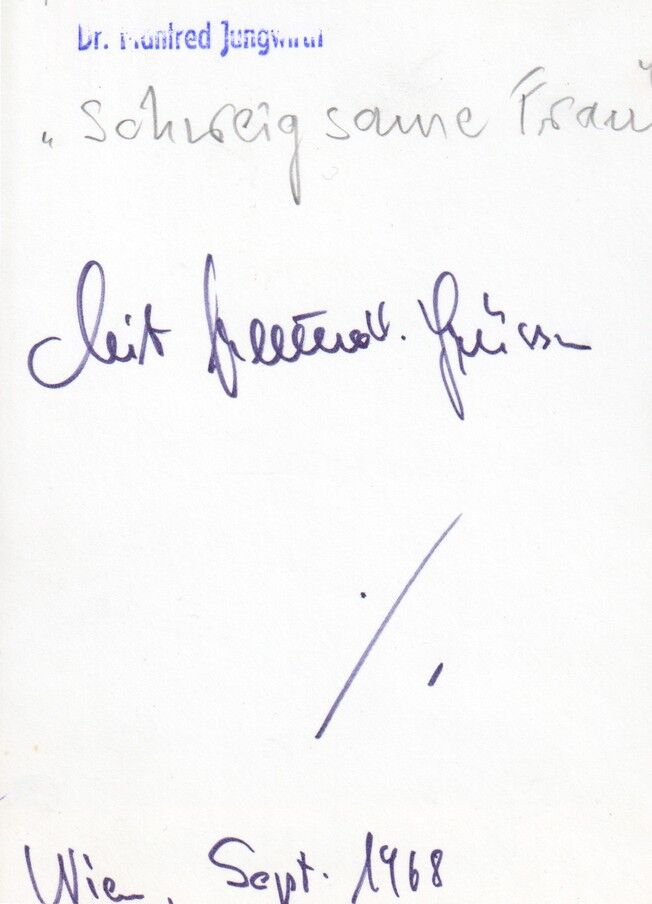 Dr. Manfred Jungwirth
„Schweigsame Frau"
Mit freundl. Grüssen
./.
Wien, Sept. 1968